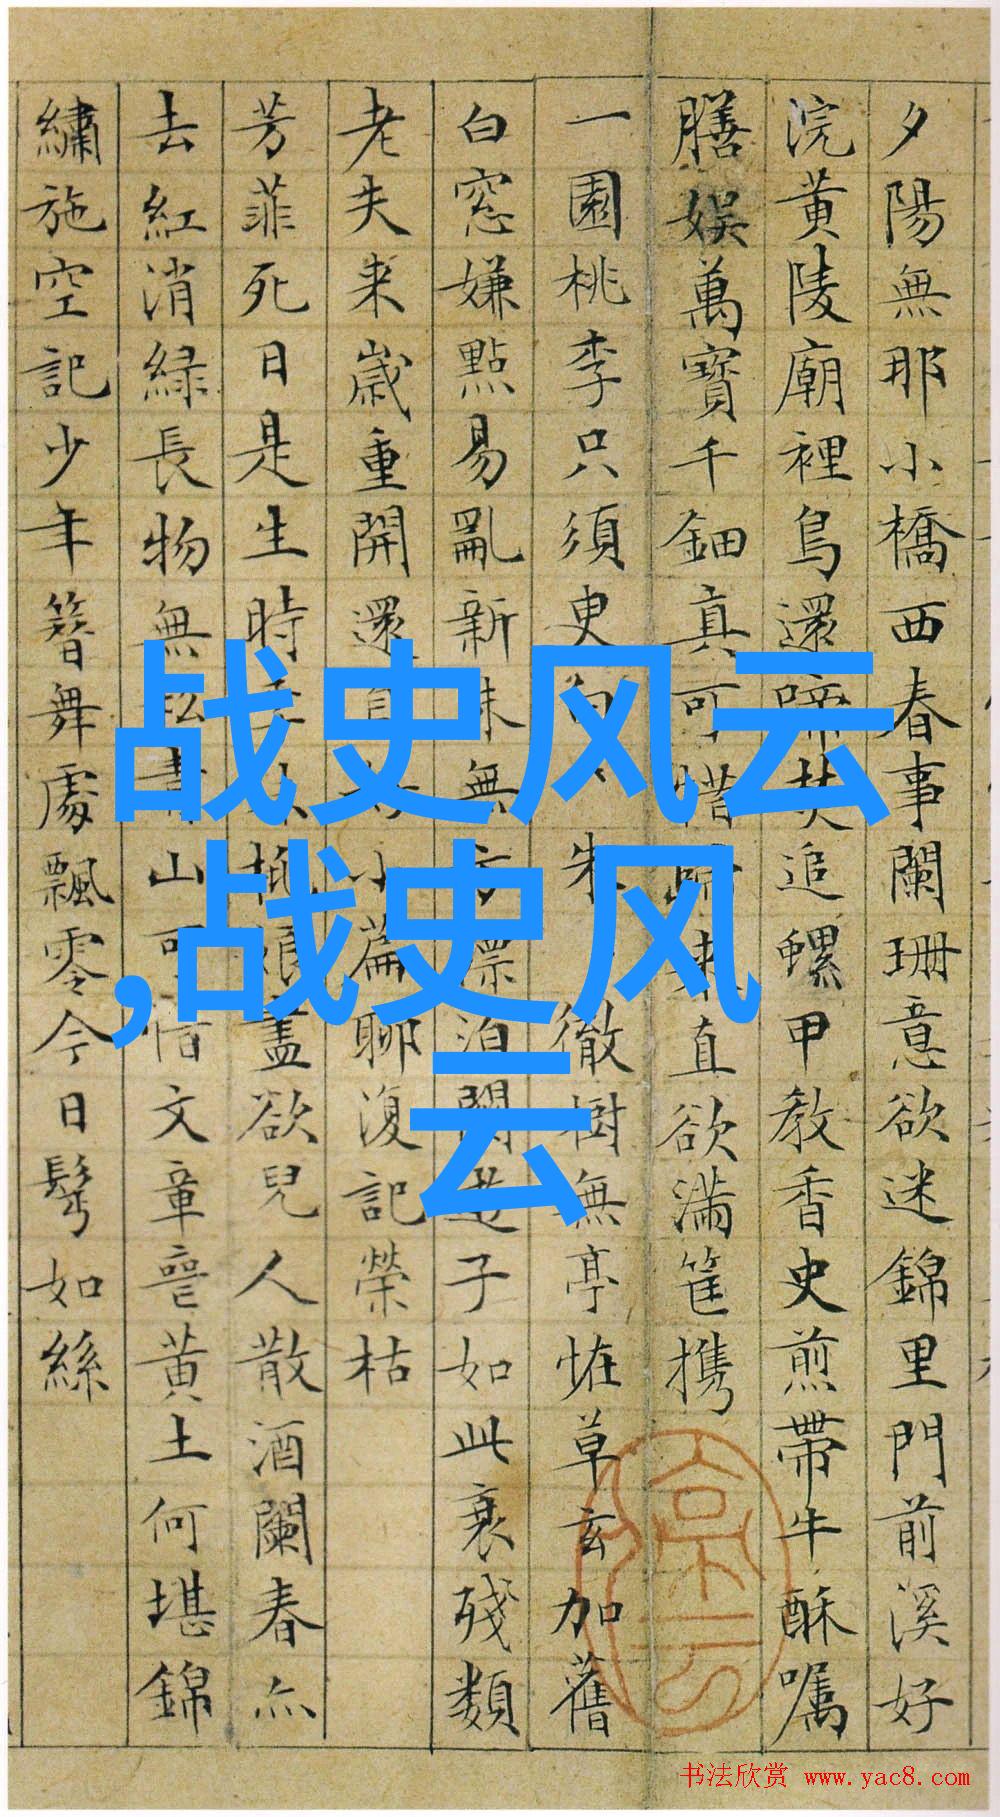 夕陽無那小橋西春事闌珊意欲迷錦里門前溪好
浣黃陵廟裡鳥還啼扶追螺甲教香史煎帶牛酥囑
膳娛萬寶千鈿真可惜歸來直欲滿筐携
一園桃李只須臾白朱徹樹無亭恠草玄加舊
白窓嫌點易亂新朱無方漂泊關遊子如此衰殘類
老夫来嵗重開還自好小篇聊復記榮枯
芳菲死日是生時李妹桃娘盡欲兒人散酒闌春亦
去紅消緑長物無私青山可惜文章喪黄土何堪錦
繡施空記少年簪舞處飄零今日鬂如絲
战史风云
,战史风
云
书法欣赏 www.yac8.com